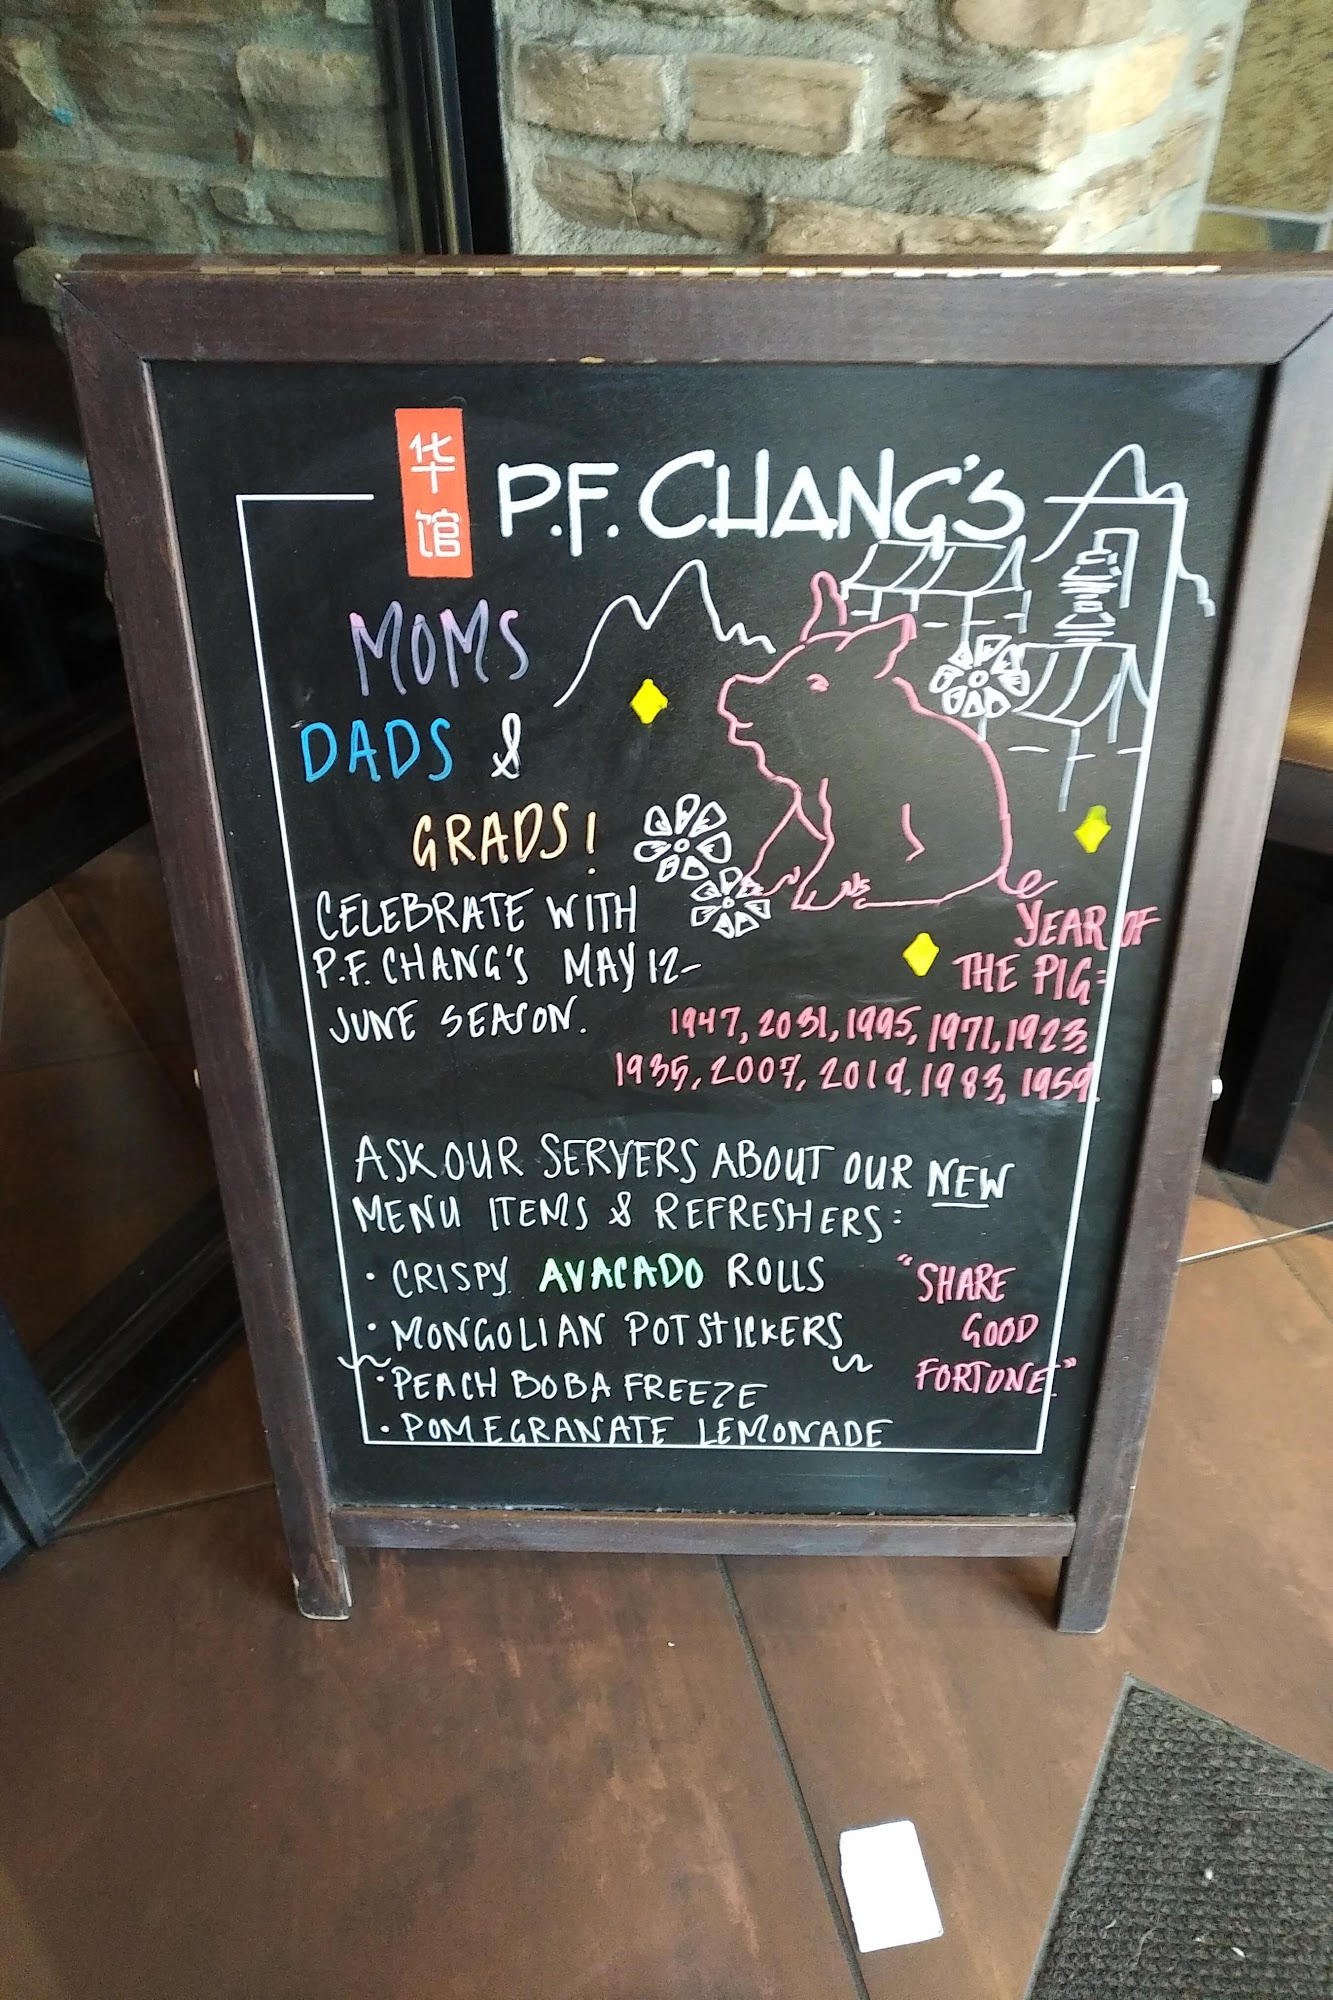 华馆
P.F. CHANG'S
MOMS
DADS &
GRADS!
CELEBRATE WITH
P.F. CHANG'S MAY 12-
JUNE SEASON.
YEAR OF
THE PIG:
1947, 2031, 1995, 1971, 1923,
1935, 2007, 2019, 1983, 1959.
ASK OUR SERVERS ABOUT OUR NEW
MENU ITEMS & REFRESHERS:
• CRISPY AVACADO ROLLS
• MONGOLIAN POTSTICKERS
• PEACH BOBA FREEZE
• POMEGRANATE LEMONADE
"SHARE
GOOD
FORTUNE."